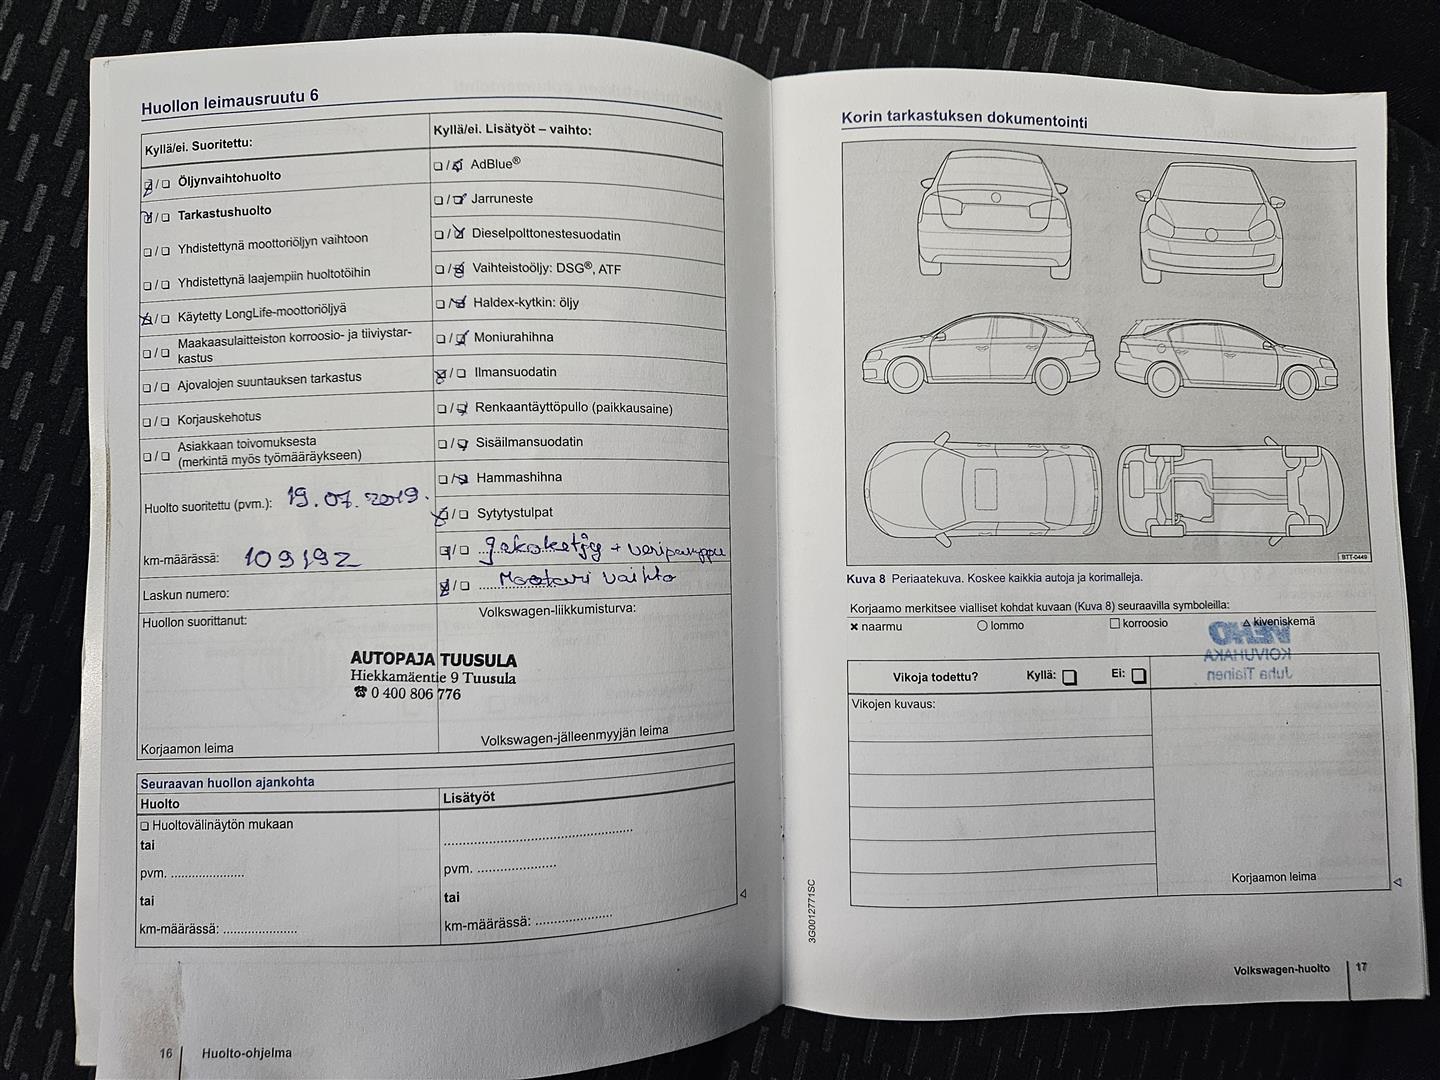 Huollon leimausruutu 6
Kyllä/ei. Suoritettu:
Öljynvaihtohuolto
Tarkastushuolto
Yhdistettynä moottoriöljyn vaihtoon
Yhdistettynä laajempiin huoltotöihin
Käytetty LongLife-moottoriöljyä
Maakaasulaitteiston korroosio- ja tiiviystar-
kastus
Ajovalojen suuntauksen tarkastus
Korjauskehotus
Asiakkaan toivomuksesta
(merkintä myös työmääräykseen)
Huolto suoritettu (pvm.): 19.07.2019.
km-määrässä: 109192
Laskun numero:
Huollon suorittanut:
Kyllä/ei. Lisätyöt – vaihto:
AdBlue®
Jarruneste
Dieselpolttonestesuodatin
Vaihteistoöljy: DSG®, ATF
Haldex-kytkin: öljy
Moniurahihna
Ilmansuodatin
Renkaantäyttöpullo (paikkausaine)
Sisäilmansuodatin
Hammashihna
Sytytystulpat
Jakoketju + vesipumppu
Moottori vaihto
Volkswagen-liikkumisturva:
AUTOPAJA TUUSULA
Hiekkamäentie 9 Tuusula
☎ 0 400 806 776
Korjaamon leima
Volkswagen-jälleenmyyjän leima
Seuraavan huollon ajankohta
Huolto
Huoltovälinäytön mukaan
tai
pvm. .....................
tai
km-määrässä: .....................
Lisätyöt
.....................................................
pvm. ......................
tai
km-määrässä: ......................
16 Huolto-ohjelma
Korin tarkastuksen dokumentointi
BTT-0449
Kuva 8 Periaatekuva. Koskee kaikkia autoja ja korimalleja.
Korjaamo merkitsee vialliset kohdat kuvaan (Kuva 8) seuraavilla symboleilla:
× naarmu ○ lommo □ korroosio △ kiveniskemä
VEHO
KOIVUHAKA
Juha Tiainen
Vikoja todettu? Kyllä: Ei:
Vikojen kuvaus:
Korjaamon leima
3G0012771SC
Volkswagen-huolto 17